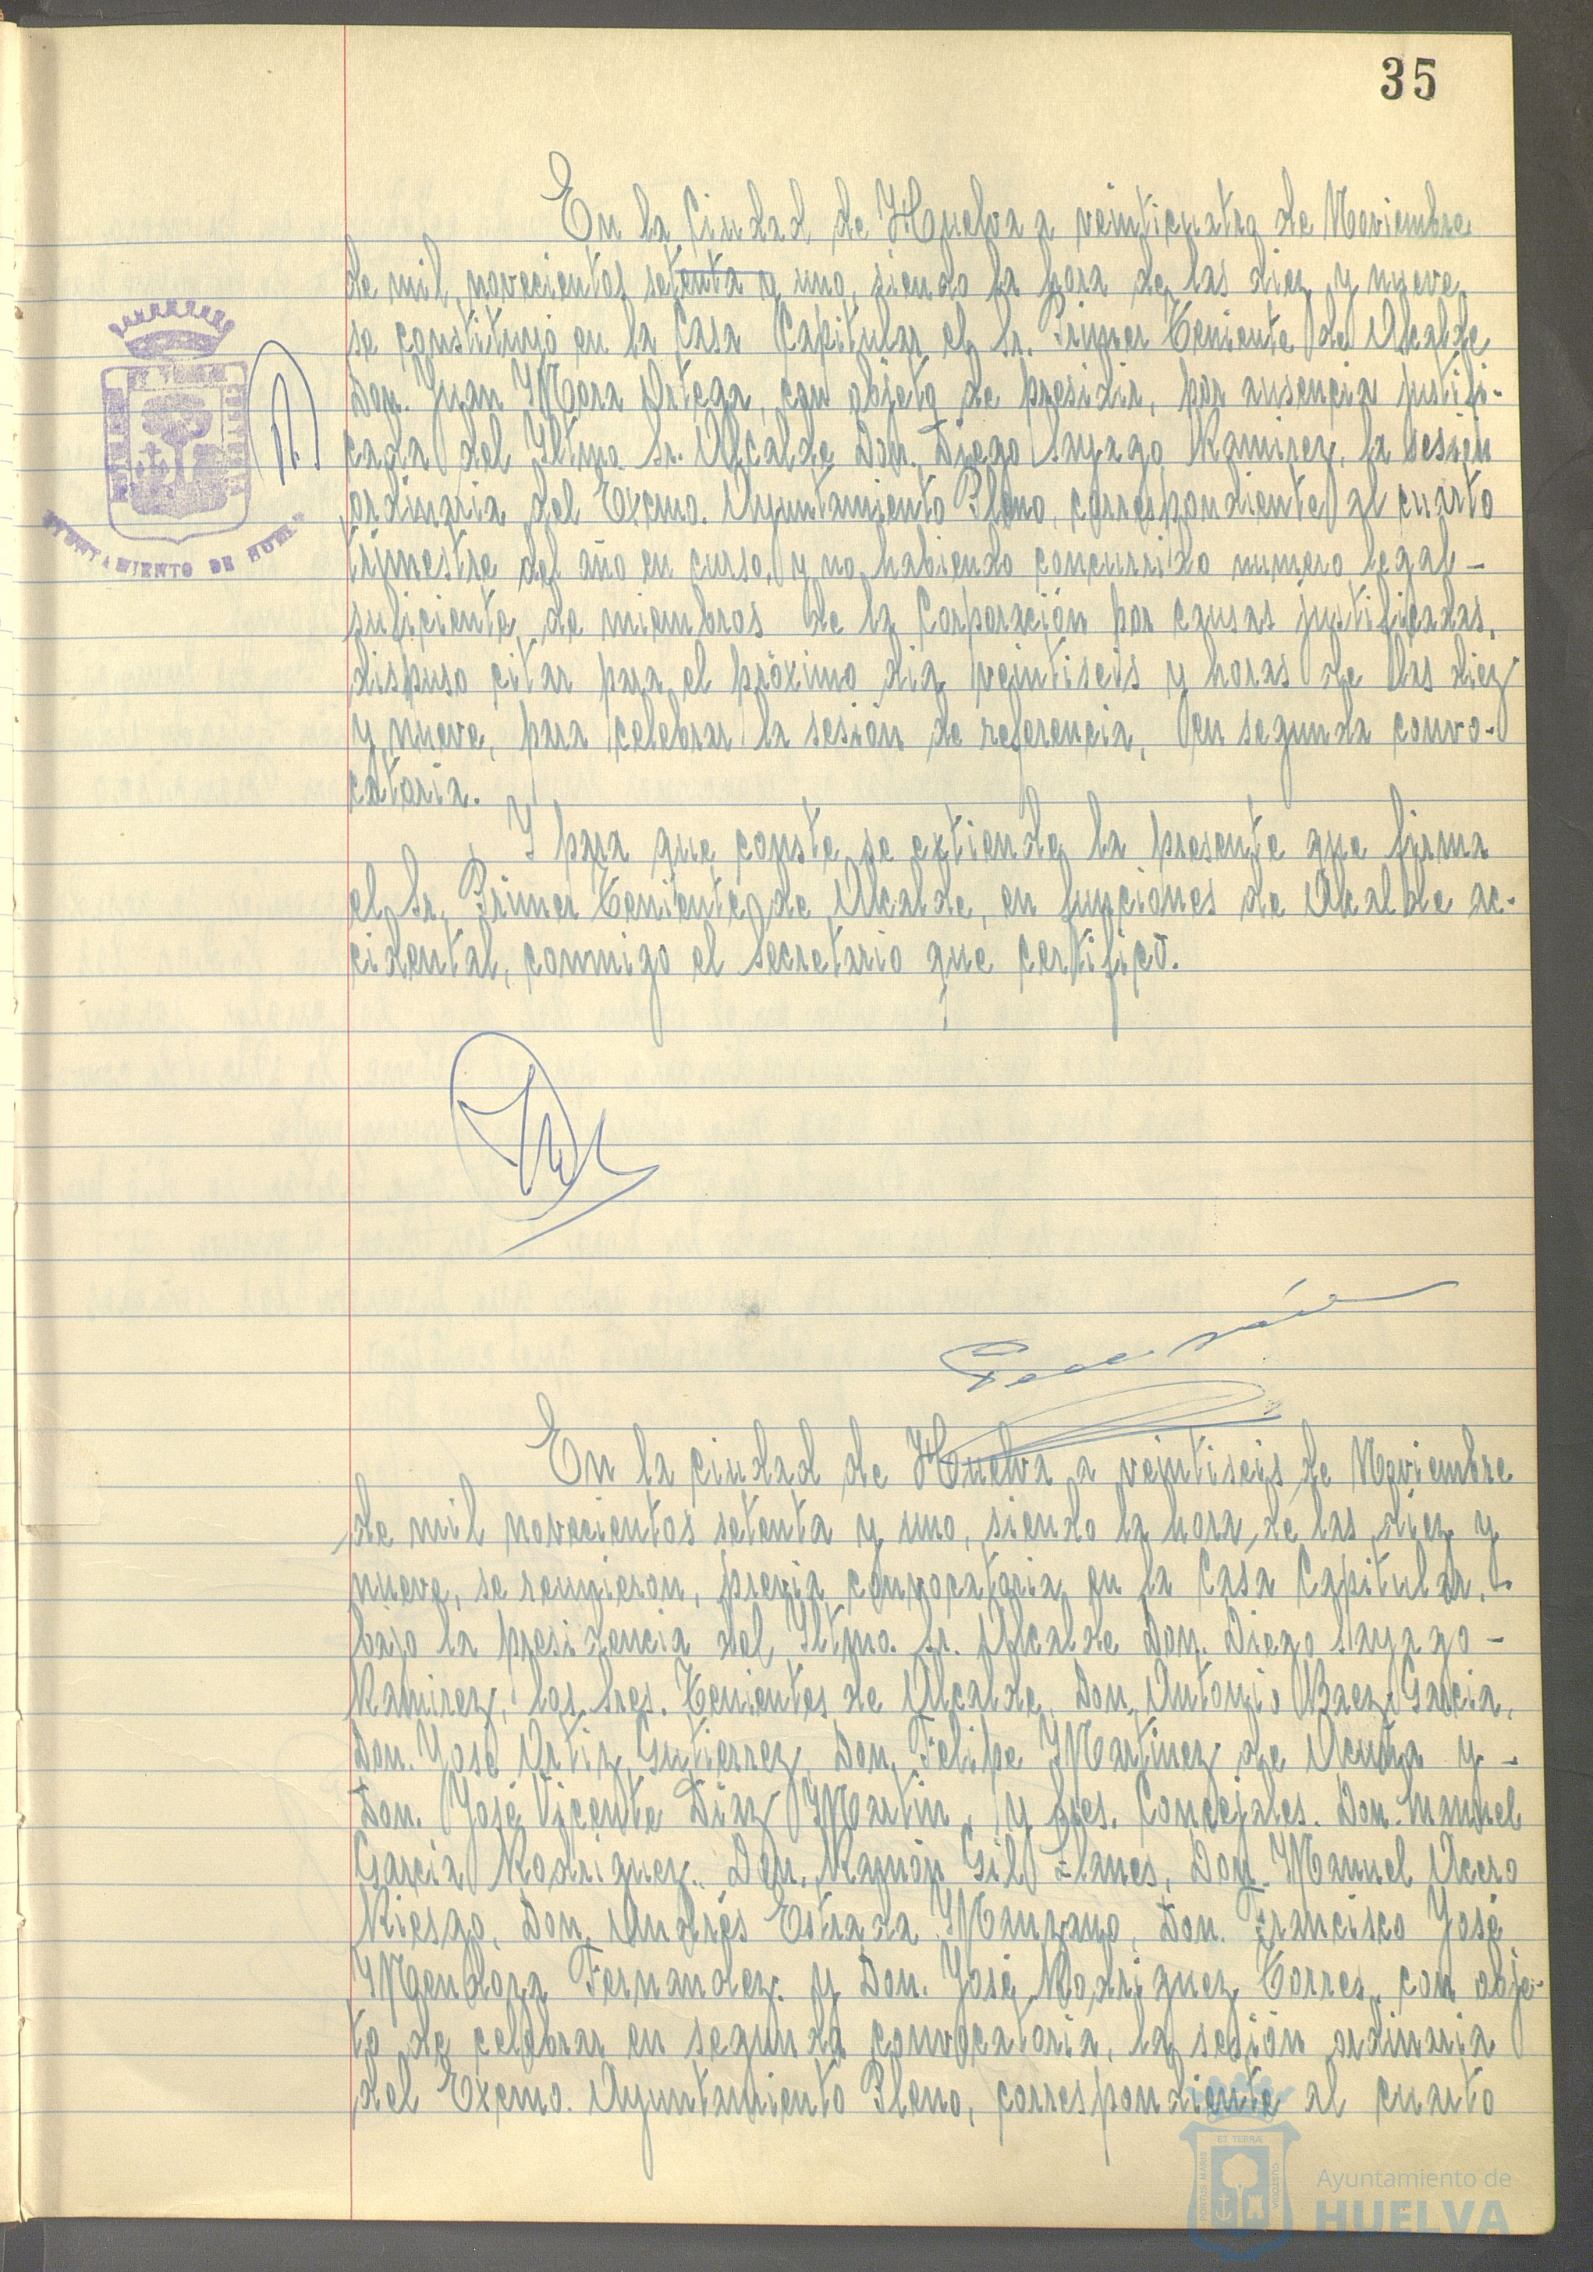 35
En la Ciudad de Huelva a veinticuatro de Noviembre
de mil novecientos setenta y uno, siendo la hora de las diez y nueve,
se constituyó en la Casa Capitular el Sr. Primer Teniente de Alcalde
Don. Juan Mora Ortega, con objeto de presidir, por ausencia justifi-
cada del Iltmo. Sr. Alcalde Don. Diego Sayago Ramirez, la sesión
ordinaria del Excmo. Ayuntamiento Pleno, correspondiente al cuarto
trimestre del año en curso, y no habiendo concurrido numero legal -
suficiente de miembros de la Corporación por causas justificadas,
dispuso citar para el próximo dia veintiseis y horas de las diez
y nueve, para celebrar la sesión de referencia, en segunda convo-
catoria.
Y para que conste se extiende la presente que firma
el Sr. Primer Teniente de Alcalde, en funciones de Alcalde ac-
cidental, conmigo el Secretario que certifico.
AYUNTAMIENTO DE HUELVA
En la ciudad de Huelva a veintiseis de Noviembre
de mil novecientos setenta y uno, siendo la hora de las diez y
nueve, se reunieron, previa convocatoria en la Casa Capitular, -
bajo la presidencia del Iltmo. Sr. Alcalde Don. Diego Sayago -
Ramirez, los Sres. Tenientes de Alcalde, Don. Antonio Baez Garcia,
Don. José Ortiz Gutierrez, Don. Felipe Martinez de Acuña y -
Don. José Vicente Diaz Martin, y Sres. Concejales. Don. Manuel
Garcia Rodriguez. Don. Ramón Gil Llanes, Don. Manuel Acero
Riesgo, Don. Andrés Estrada Manzano, Don. Francisco José
Mendoza Fernandez. y Don. José Rodriguez Torres, con obje-
to de celebrar en segunda convocatoria, la sesión ordinaria
del Excmo. Ayuntamiento Pleno, correspondiente al cuarto
Ayuntamiento de
HUELVA